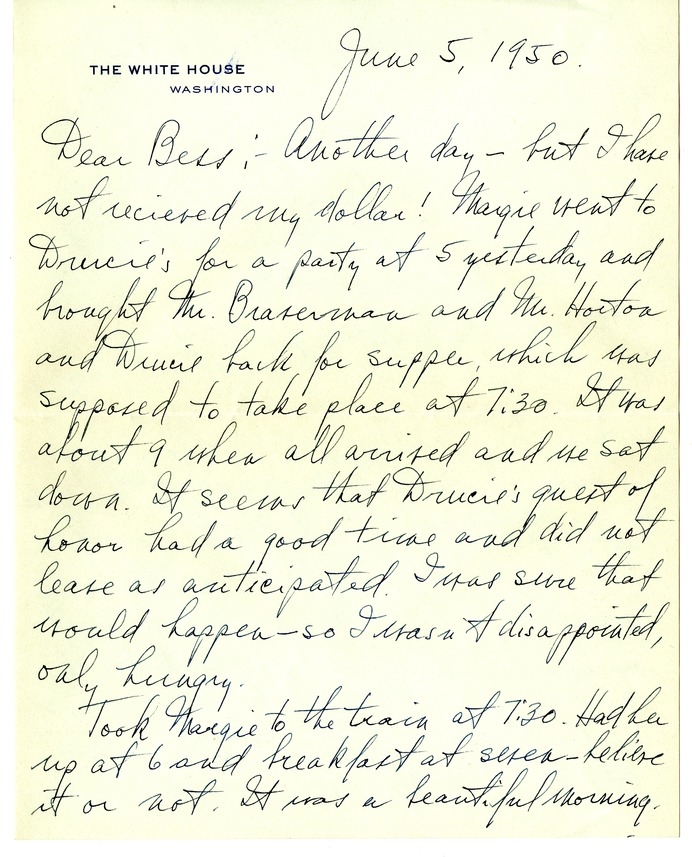 June 5, 1950.
THE WHITE HOUSE
WASHINGTON
Dear Bess:- Another day - but I have
not recieved my dollar! Margie went to
Drucie's for a party at 5 yesterday and
brought Mr. Braverman and Mr. Horton
and Drucie back for supper, which was
supposed to take place at 7:30. It was
about 9 when all arrived and we sat
down. It seems that Drucie's guest of
honor had a good time and did not
leave as anticipated. I was sure that
would happen - so I wasn't disappointed,
only hungry.
Took Margie to the train at 7:30. Had her
up at 6 and breakfast at seven - believe
it or not. It was a beautiful morning.